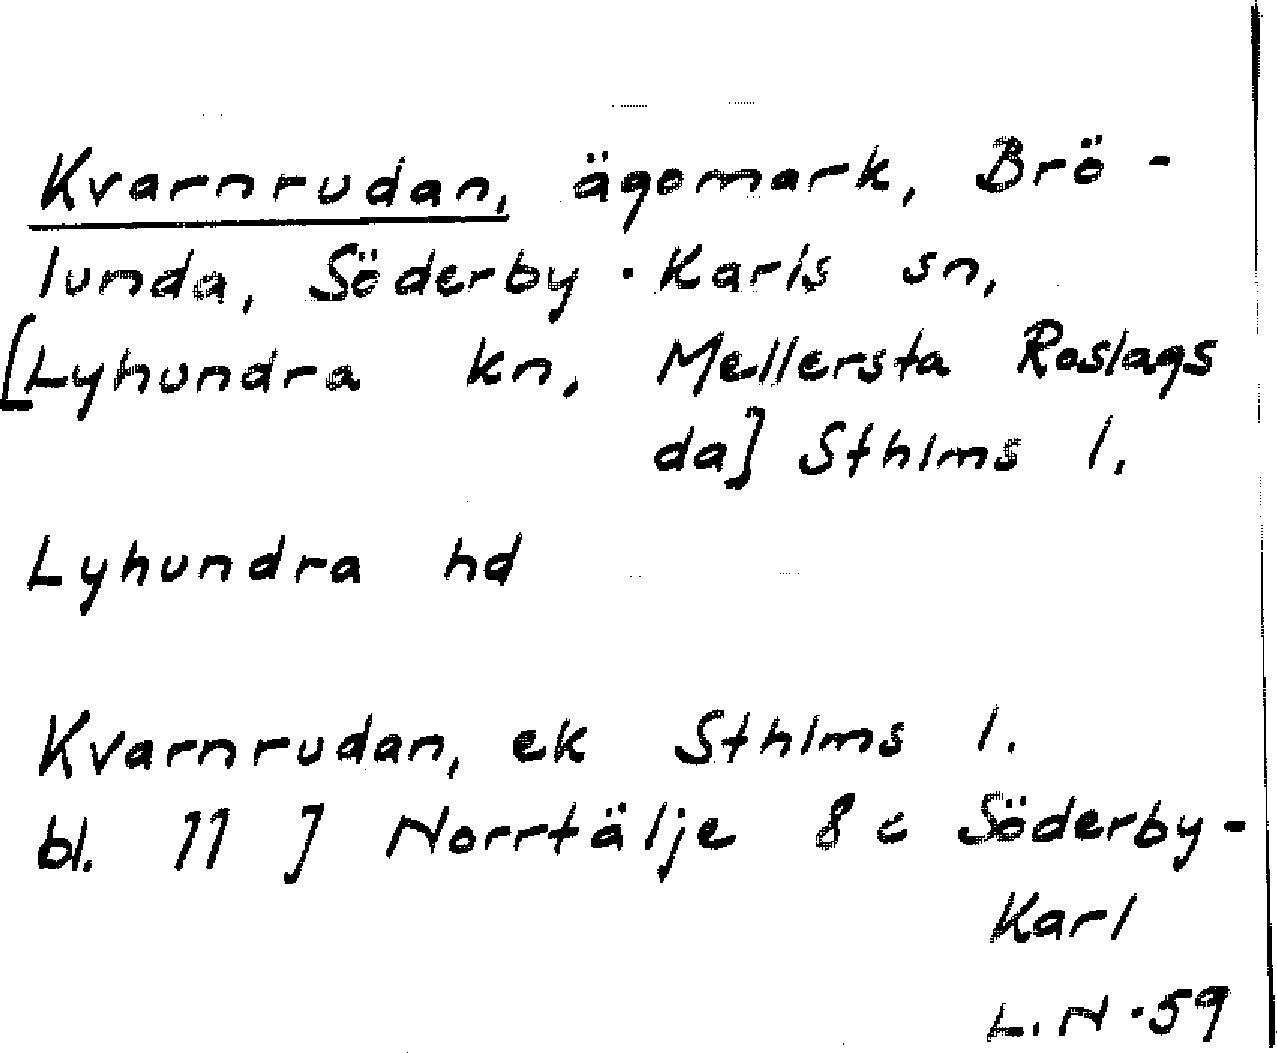 Kvarnrudan, ägomark, Brö-
lunda, Söderby-Karls sn,
[Lyhundra kn, Mellersta Roslags
da] Sthlms l.
Lyhundra hd
Kvarnrudan, ek Sthlms l.
bl. 11 J Norrtälje 8 c Söderby-
Karl
L. N -59